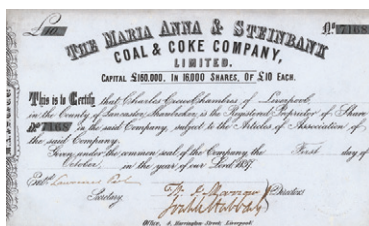 £10. No. 7168
THE MARIA ANNA & STEINBANK
COAL & COKE COMPANY,
LIMITED.
CAPITAL £160,000. IN 16,000 SHARES, OF £10 EACH.
This is to Certify that Charles Chambres of Liverpool,
in the County of Lancaster, is the Registered Proprietor of Share
No. 7168 in the said Company, subject to the Articles of Association of
the said Company.
Given under the common seal of the Company the First day of
October, in the year of our Lord
Secretary Directors
Office, Harrington Street, Liverpool